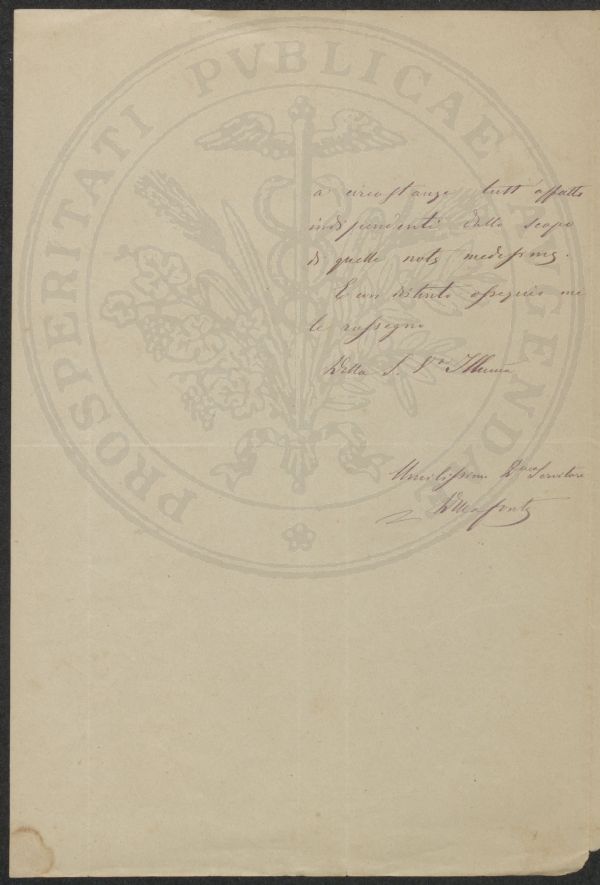 PROSPERITATI PVBLICAE AVGENDAE
a circostanze tutt'affatto
indipendenti dallo scopo
di quella nota medesima.
E con distinto ossequio me
le rassegno
Della S. V.ra Illma
Umilissimo Servitore